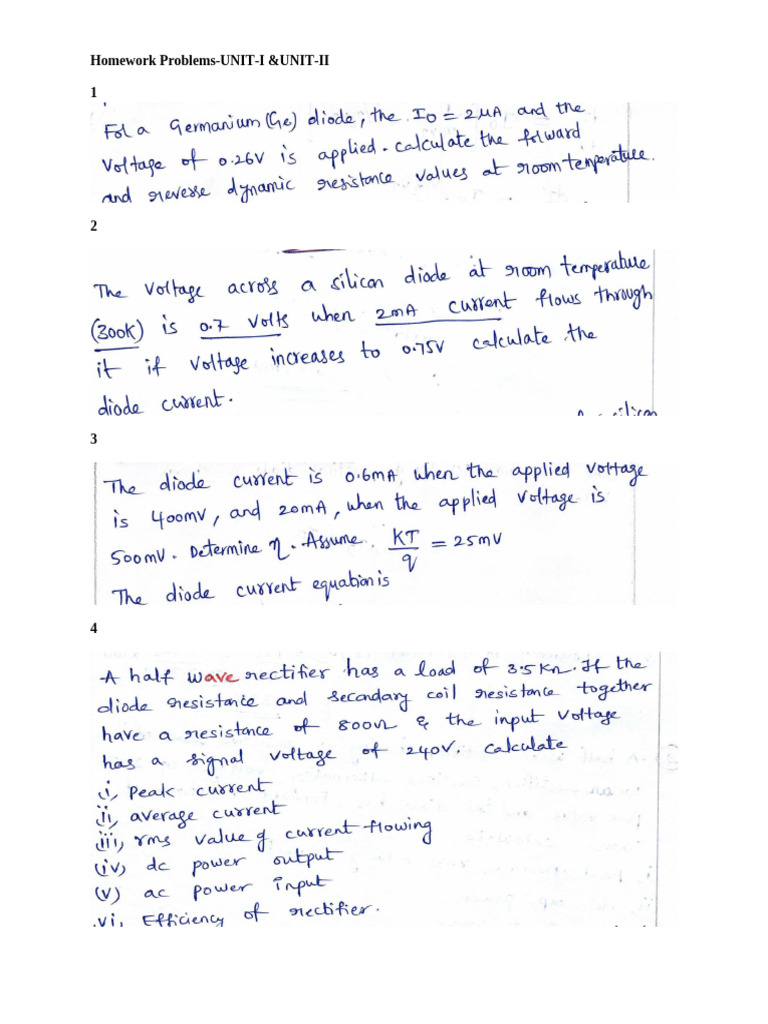 Homework Problems-UNIT-I &UNIT-II
1
For a Germanium(Ge) diode, the I0 = 2μA, and the
voltage of 0.26V is applied. calculate the forward
and reverse dynamic resistance values at room temperature.
2
The voltage across a silicon diode at room temperature
(300K) is 0.7 volts when 2mA current flows through
it if voltage increases to 0.75V calculate the
diode current.
silicon
3
The diode current is 0.6mA, when the applied voltage
is 400mv, and 20mA, when the applied voltage is
500mV. Determine η. Assume KT/q = 25mV
The diode current equation is
4
A half wave rectifier has a load of 3.5KΩ. If the
diode resistance and secondary coil resistance together
have a resistance of 800Ω & the input voltage
has a signal voltage of 240V. calculate
i, peak current
ii, average current
iii, rms value of current flowing
(iv) dc power output
(v) ac power input
vi, Efficiency of rectifier.